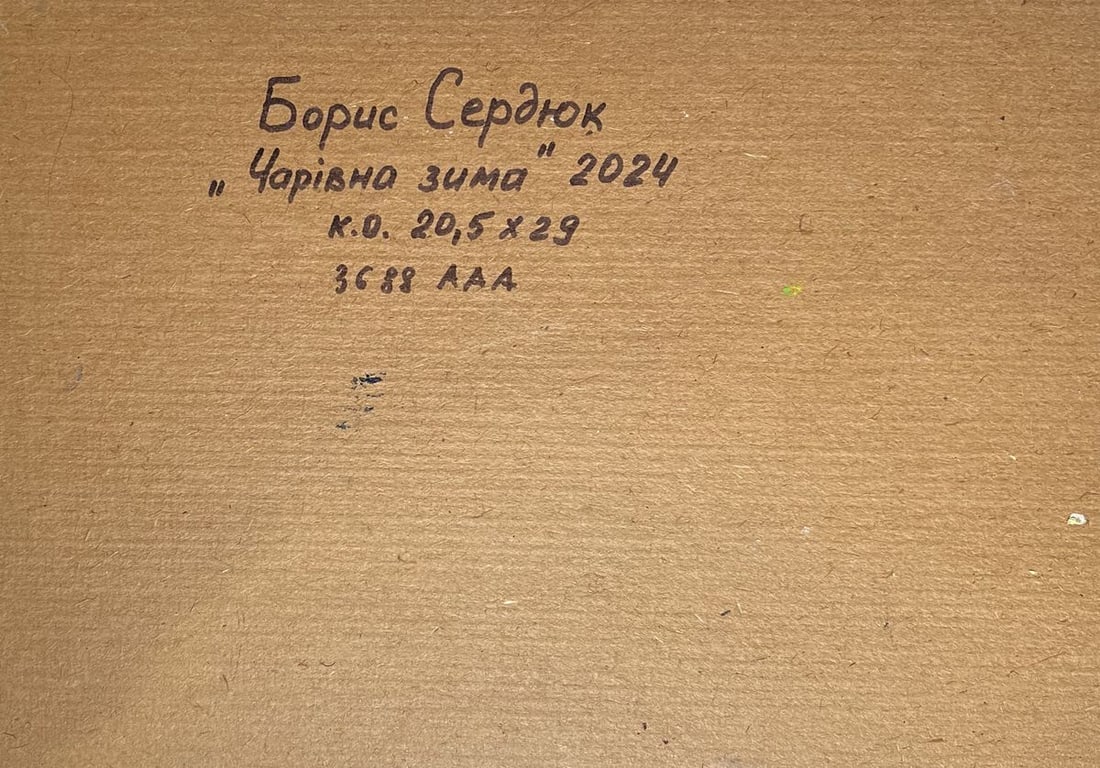 Борис Сердюк
„Чарівна зима" 2024
к.о. 20,5 х 29
3688 ААА